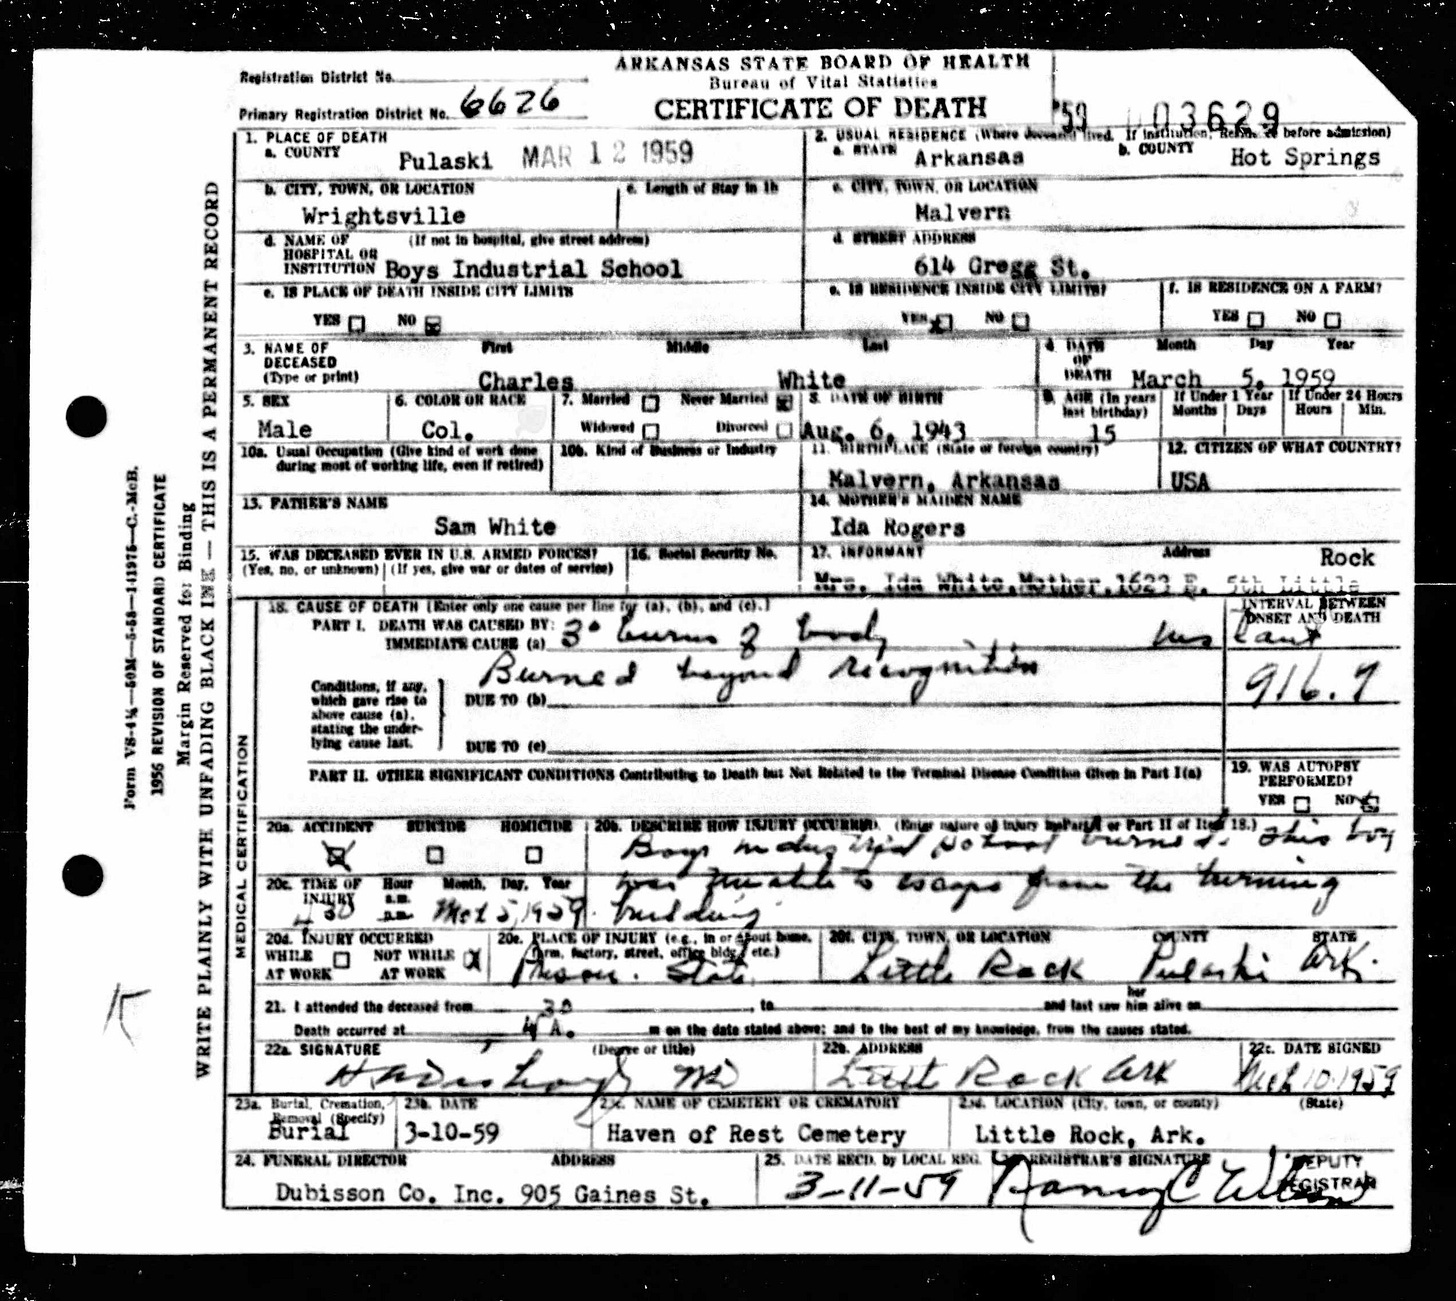 ARKANSAS STATE BOARD OF HEALTH
Bureau of Vital Statistics
CERTIFICATE OF DEATH
Registration District No.
Primary Registration District No. 6626
'59 003629
1. PLACE OF DEATH
a. COUNTY Pulaski MAR 12 1959
2. USUAL RESIDENCE (Where deceased lived. If institution, Residence before admission)
a. STATE Arkansas b. COUNTY Hot Springs
b. CITY, TOWN, OR LOCATION Wrightsville
c. Length of Stay in 1b
c. CITY, TOWN, OR LOCATION Malvern
d. NAME OF HOSPITAL OR INSTITUTION (If not in hospital, give street address) Boys Industrial School
d. STREET ADDRESS 614 Gregg St.
e. IS PLACE OF DEATH INSIDE CITY LIMITS
YES NO
e. IS RESIDENCE INSIDE CITY LIMITS?
YES NO
f. IS RESIDENCE ON A FARM?
YES NO
3. NAME OF DECEASED (Type or print)
First Middle Last
Charles White
4. DATE OF DEATH Month Day Year
March 5, 1959
5. SEX Male
6. COLOR OR RACE Col.
7. Married Never Married
Widowed Divorced
8. DATE OF BIRTH Aug. 6, 1943
9. AGE (In years last birthday) 15
If Under 1 Year Months Days
If Under 24 Hours Hours Min.
10a. Usual Occupation (Give kind of work done during most of working life, even if retired)
10b. Kind of Business or Industry
11. BIRTHPLACE (State or foreign country) Malvern, Arkansas
12. CITIZEN OF WHAT COUNTRY? USA
13. FATHER'S NAME Sam White
14. MOTHER'S MAIDEN NAME Ida Rogers
15. WAS DECEASED EVER IN U.S. ARMED FORCES?
(Yes, no, or unknown) (If yes, give war or dates of service)
16. Social Security No.
17. INFORMANT Address Rock
Mrs. Ida White, Mother, 1623 E. 5th Little
18. CAUSE OF DEATH [Enter only one cause per line for (a), (b), and (c).]
INTERVAL BETWEEN ONSET AND DEATH
PART I. DEATH WAS CAUSED BY:
IMMEDIATE CAUSE (a) 3° burns of body instant
Burned beyond recognition 916.9
Conditions, if any, which gave rise to above cause (a), stating the underlying cause last.
DUE TO (b)
DUE TO (c)
PART II. OTHER SIGNIFICANT CONDITIONS Contributing to Death but Not Related to the Terminal Disease Condition Given in Part I(a)
19. WAS AUTOPSY PERFORMED?
YES NO
20a. ACCIDENT SUICIDE HOMICIDE
20b. DESCRIBE HOW INJURY OCCURRED. (Enter nature of injury in Part I or Part II of Item 18.)
Boys Industrial School burned. This boy
was unable to escape from the burning
building
20c. TIME OF INJURY Hour a.m. p.m. Month, Day, Year
4 30 Mch 5, 1959
20d. INJURY OCCURRED
WHILE AT WORK NOT WHILE AT WORK
20e. PLACE OF INJURY (e.g., in or about home, farm, factory, street, office bldg., etc.)
Prison. State
20f. CITY, TOWN, OR LOCATION COUNTY STATE
Little Rock Pulaski Ark.
21. I attended the deceased from , to and last saw her him alive on
Death occurred at 4 30 A. m on the date stated above; and to the best of my knowledge, from the causes stated.
22a. SIGNATURE (Degree or title)
MD
22b. ADDRESS Little Rock Ark
22c. DATE SIGNED Mch 10-1959
23a. Burial, Cremation, Removal (Specify) Burial
23b. DATE 3-10-59
23c. NAME OF CEMETERY OR CREMATORY Haven of Rest Cemetery
23d. LOCATION (City, town, or county) (State) Little Rock, Ark.
24. FUNERAL DIRECTOR ADDRESS
Dubisson Co. Inc. 905 Gaines St.
25. DATE RECD. by LOCAL REG. 3-11-59
REGISTRAR'S SIGNATURE
DEPUTY REGISTRAR
MEDICAL CERTIFICATION
WRITE PLAINLY WITH UNFADING BLACK INK — THIS IS A PERMANENT RECORD
Margin Reserved for Binding
1956 REVISION OF STANDARD CERTIFICATE